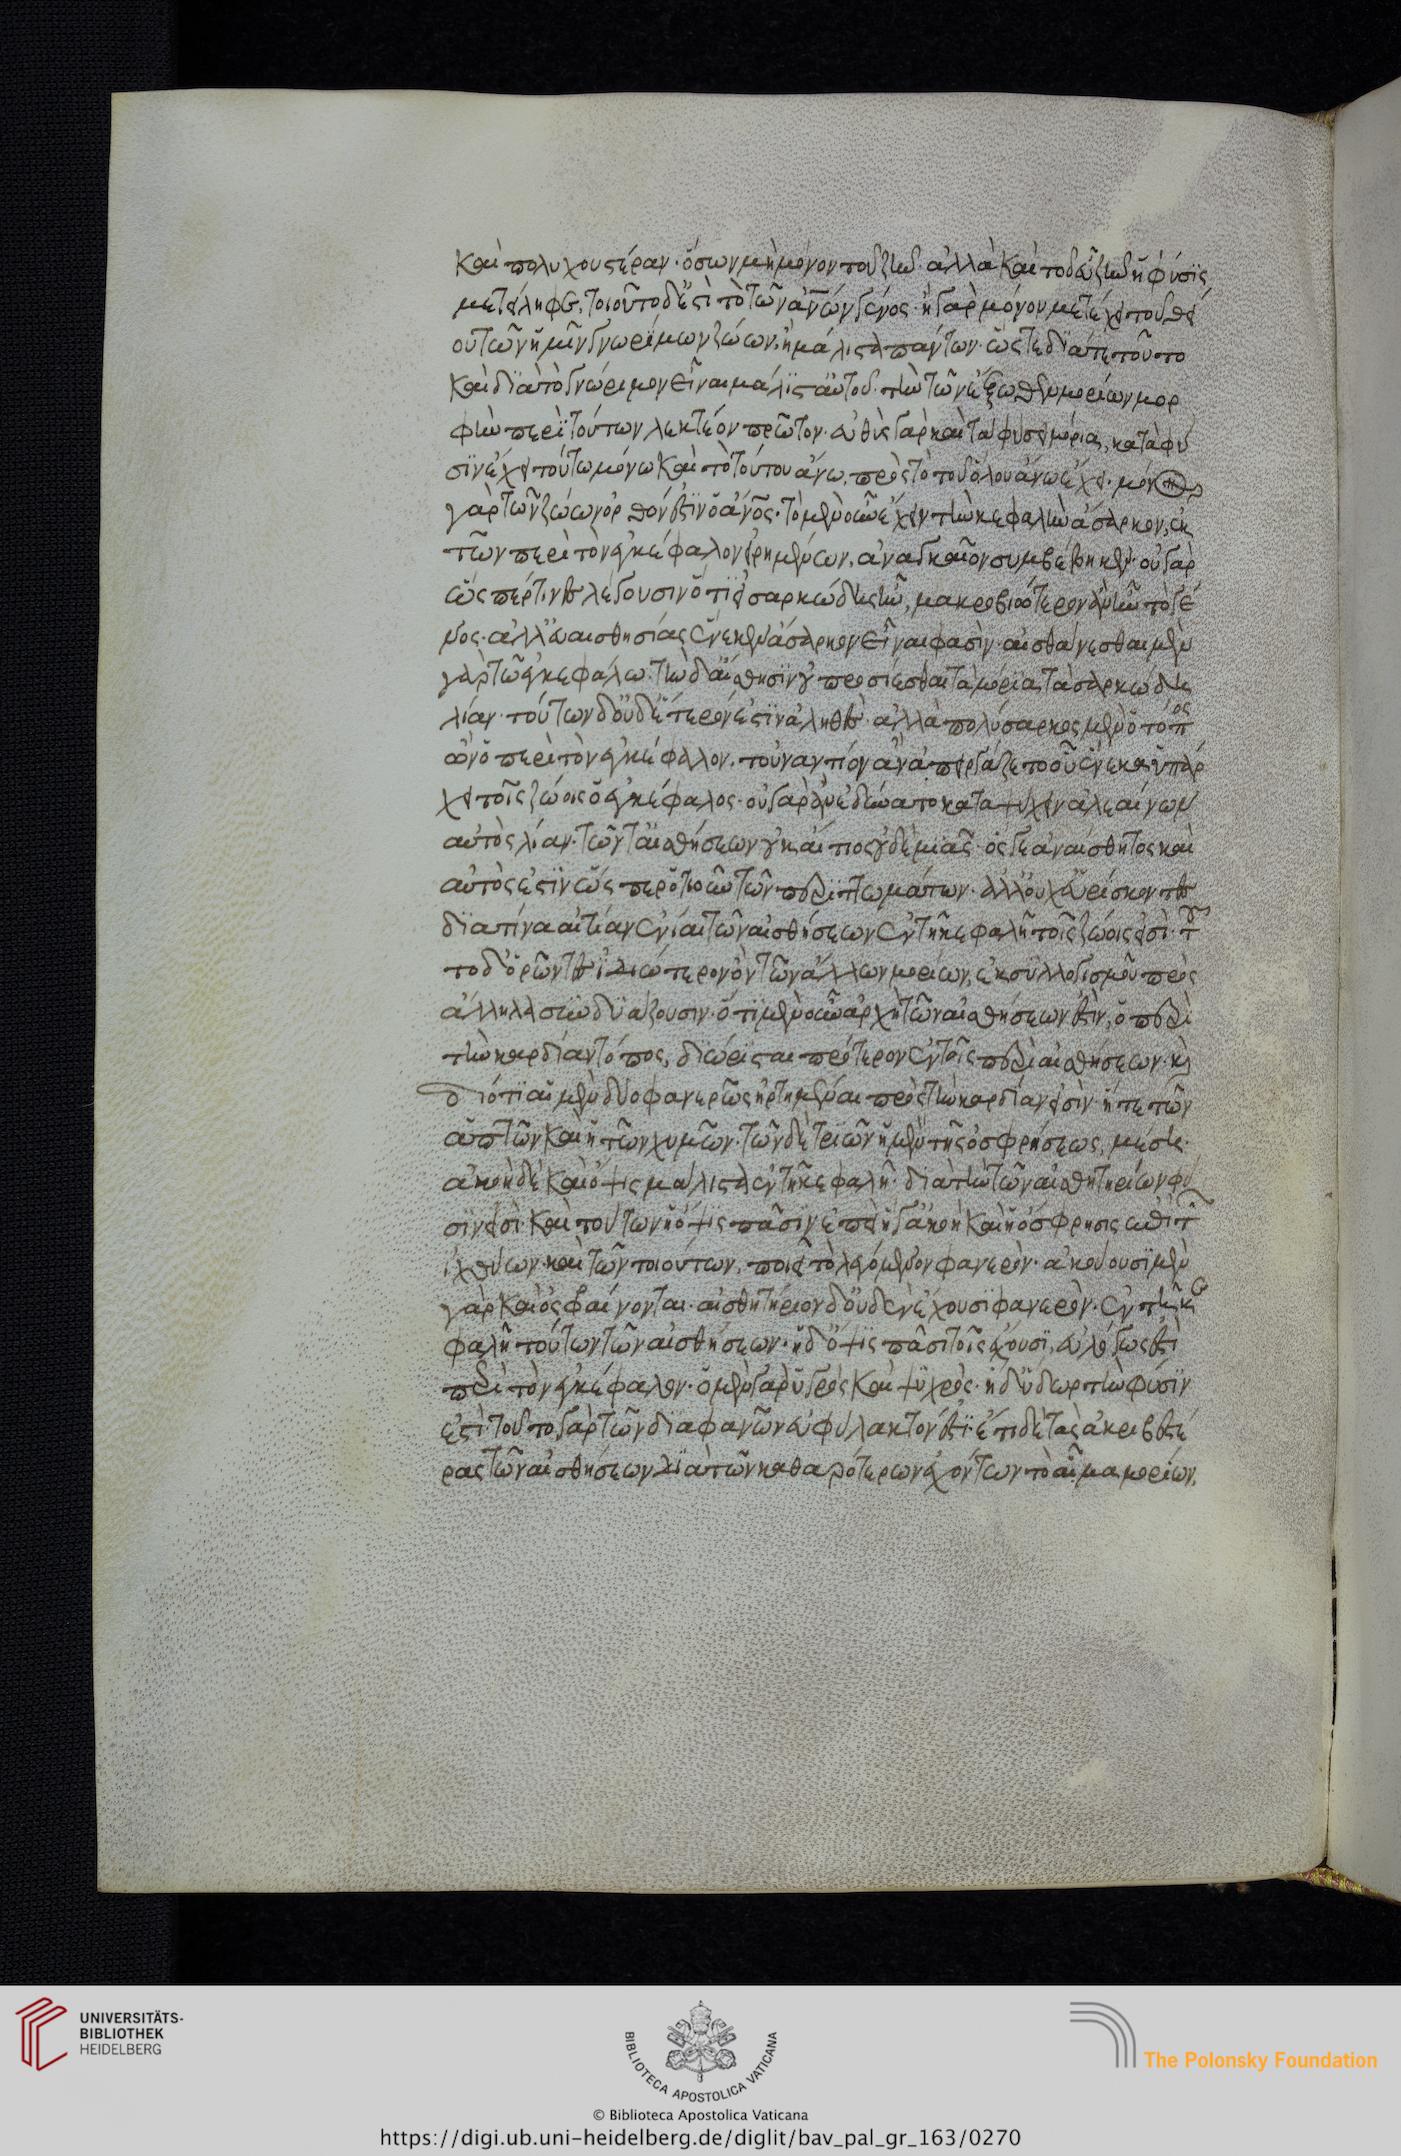 καὶ πολυχουστέραν· ὅσων μὴ μόνον τοῦ ζῆν ἀλλὰ καὶ τοῦ εὖ ζῆν ἡ φύσις
μετείληφε, τοιοῦτο δ' ἐστὶ τὸ τῶν ἀνῶν γένος· ἢ γὰρ μόνον μετέχει τοῦ θεί
ου τῶν ἡμῖν γνωρίμων ζώων, ἢ μάλιστα πάντων· ὥστε διά τε τοῦτο
καὶ διὰ τὸ γνώριμον εἶναι μάλιστ' αὐτοῦ τὴν τῶν ἔξωθεν μορίων μορ
φὴν περὶ τούτων λεκτέον πρῶτον· εὐθὺς γὰρ καὶ τὰ φύσει μόρια, κατὰ φύ
σιν ἔχει τούτω μόνω καὶ τὸ τούτου ἄνω, πρὸς τὸ τοῦ ὅλου ἄνω ἔχει· μόνον
γὰρ τῶν ζώων ὀρθόν ἐστιν ὁ ἄνος· τὸ μὲν οὖν ἔχειν τὴν κεφαλὴν ἄσαρκον, ἐκ
τῶν περὶ τὸν ἐγκέφαλον εἰρημένων, ἀναγκαῖον συμβέβηκεν· οὐ γὰρ
ὥσπερ τινὲς λέγουσιν ὅτι εἰ σαρκώδης ἦν, μακροβιώτερον ἂν ἦν τὸ γέ
νος· ἀλλ' εὐαισθησίας ἕνεκεν ἄσαρκον εἶναι φασίν· αἰσθάνεσθαι μὲν
γὰρ τῶ ἐγκεφάλω· τὴν δ' αἴσθησιν οὐ προσίεσθαι τὰ μόρια τὰ σαρκώδη
λίαν· τούτων δ' οὐδέτερόν ἐστιν ἀληθὲς· ἀλλὰ πολύσαρκος μὲν ὁ τόπος
ὢν ὁ περὶ τὸν ἐγκέφαλον, τοὐναντίον ἂν ἀπειργάζετο οὗ ἕνεκα ὑπάρ
χει τοῖς ζώοις ὁ ἐγκέφαλος· οὐ γὰρ ἂν ἐδύνατο καταψύχειν ἀλεαίνων
αὐτὸς λίαν· τῶν τ' αἰσθήσεων οὐκ αἴτιος οὐδεμιᾶς· ὅς γε ἀναίσθητος καὶ
αὐτὸς ἐστὶν ὥσπερ ὁτιοῦν τῶν περιττωμάτων· ἀλλ' οὐχ εὑρίσκοντες
διὰ τίνα αἰτίαν ἔνιαι τῶν αἰσθήσεων ἐν τῆ κεφαλῆ τοῖς ζώοις εἰσὶ· τ
το δ' ὁρῶντες ἰδιώτερον ὂν τῶν ἄλλων μορίων, ἐκ συλλογισμοῦ πρὸς
ἄλληλα συνδυάζουσιν· ὅτι μὲν οὖν ἀρχὴ τῶν αἰσθήσεων ἐστὶν, ὁ περὶ
τὴν καρδίαν τόπος, διώρισται πρότερον ἐν τοῖς περὶ αἰσθήσεων· κὶ
διότι αἱ μὲν δύο φανερῶς ἠρτημέναι πρὸς τὴν καρδίαν εἰσὶν· ἥ τε τῶν
ἁπτῶν καὶ ἡ τῶν χυμῶν· τῶν δὲ τριῶν ἡ μὲν τῆς ὀσφρήσεως, μέση·
ἀκοὴ δὲ καὶ ὄψις μάλιστα ἐν τῆ κεφαλῆ· διὰ τὴν τῶν αἰσθητηρίων φύ
σιν εἰσὶ· καὶ τούτων ἡ ὄψις πᾶσιν· ἐπεὶ ἥ γ' ἀκοὴ καὶ ἡ ὄσφρησις ἐπὶ τ
ἰχθύων καὶ τῶν τοιούτων, ποιεῖ τὸ λεγόμενον φανερὸν· ἀκούουσι μὲν
γὰρ καὶ ὀσφαίνονται· αἰσθητήριον δ' οὐδὲν ἔχουσι φανερὸν· ἐν τῆ κε
φαλῆ τούτων τῶν αἰσθήσεων· ἡ δ' ὄψις πᾶσι τοῖς ἔχουσι, εὐλόγως ἐστὶ
περὶ τὸν ἐγκέφαλον· ὁ μὲν γὰρ ὑγρὸς καὶ ψυχρὸς· ἡ δ' ὕδωρ τὴν φύσιν
ἐστὶ· τοῦτο γὰρ τῶν διαφανῶν εὐφυλακτότατόν ἐστι· ἔτι δὲ τὰς ἀκριβεστέ
ρας τῶν αἰσθήσεων διὰ τῶν καθαρώτερον ἐχόντων τὸ αἷμα μορίων,
UNIVERSITÄTS-
BIBLIOTHEK
HEIDELBERG
BIBLIOTECA APOSTOLICA VATICANA
© Biblioteca Apostolica Vaticana
The Polonsky Foundation
https://digi.ub.uni-heidelberg.de/diglit/bav_pal_gr_163/0270